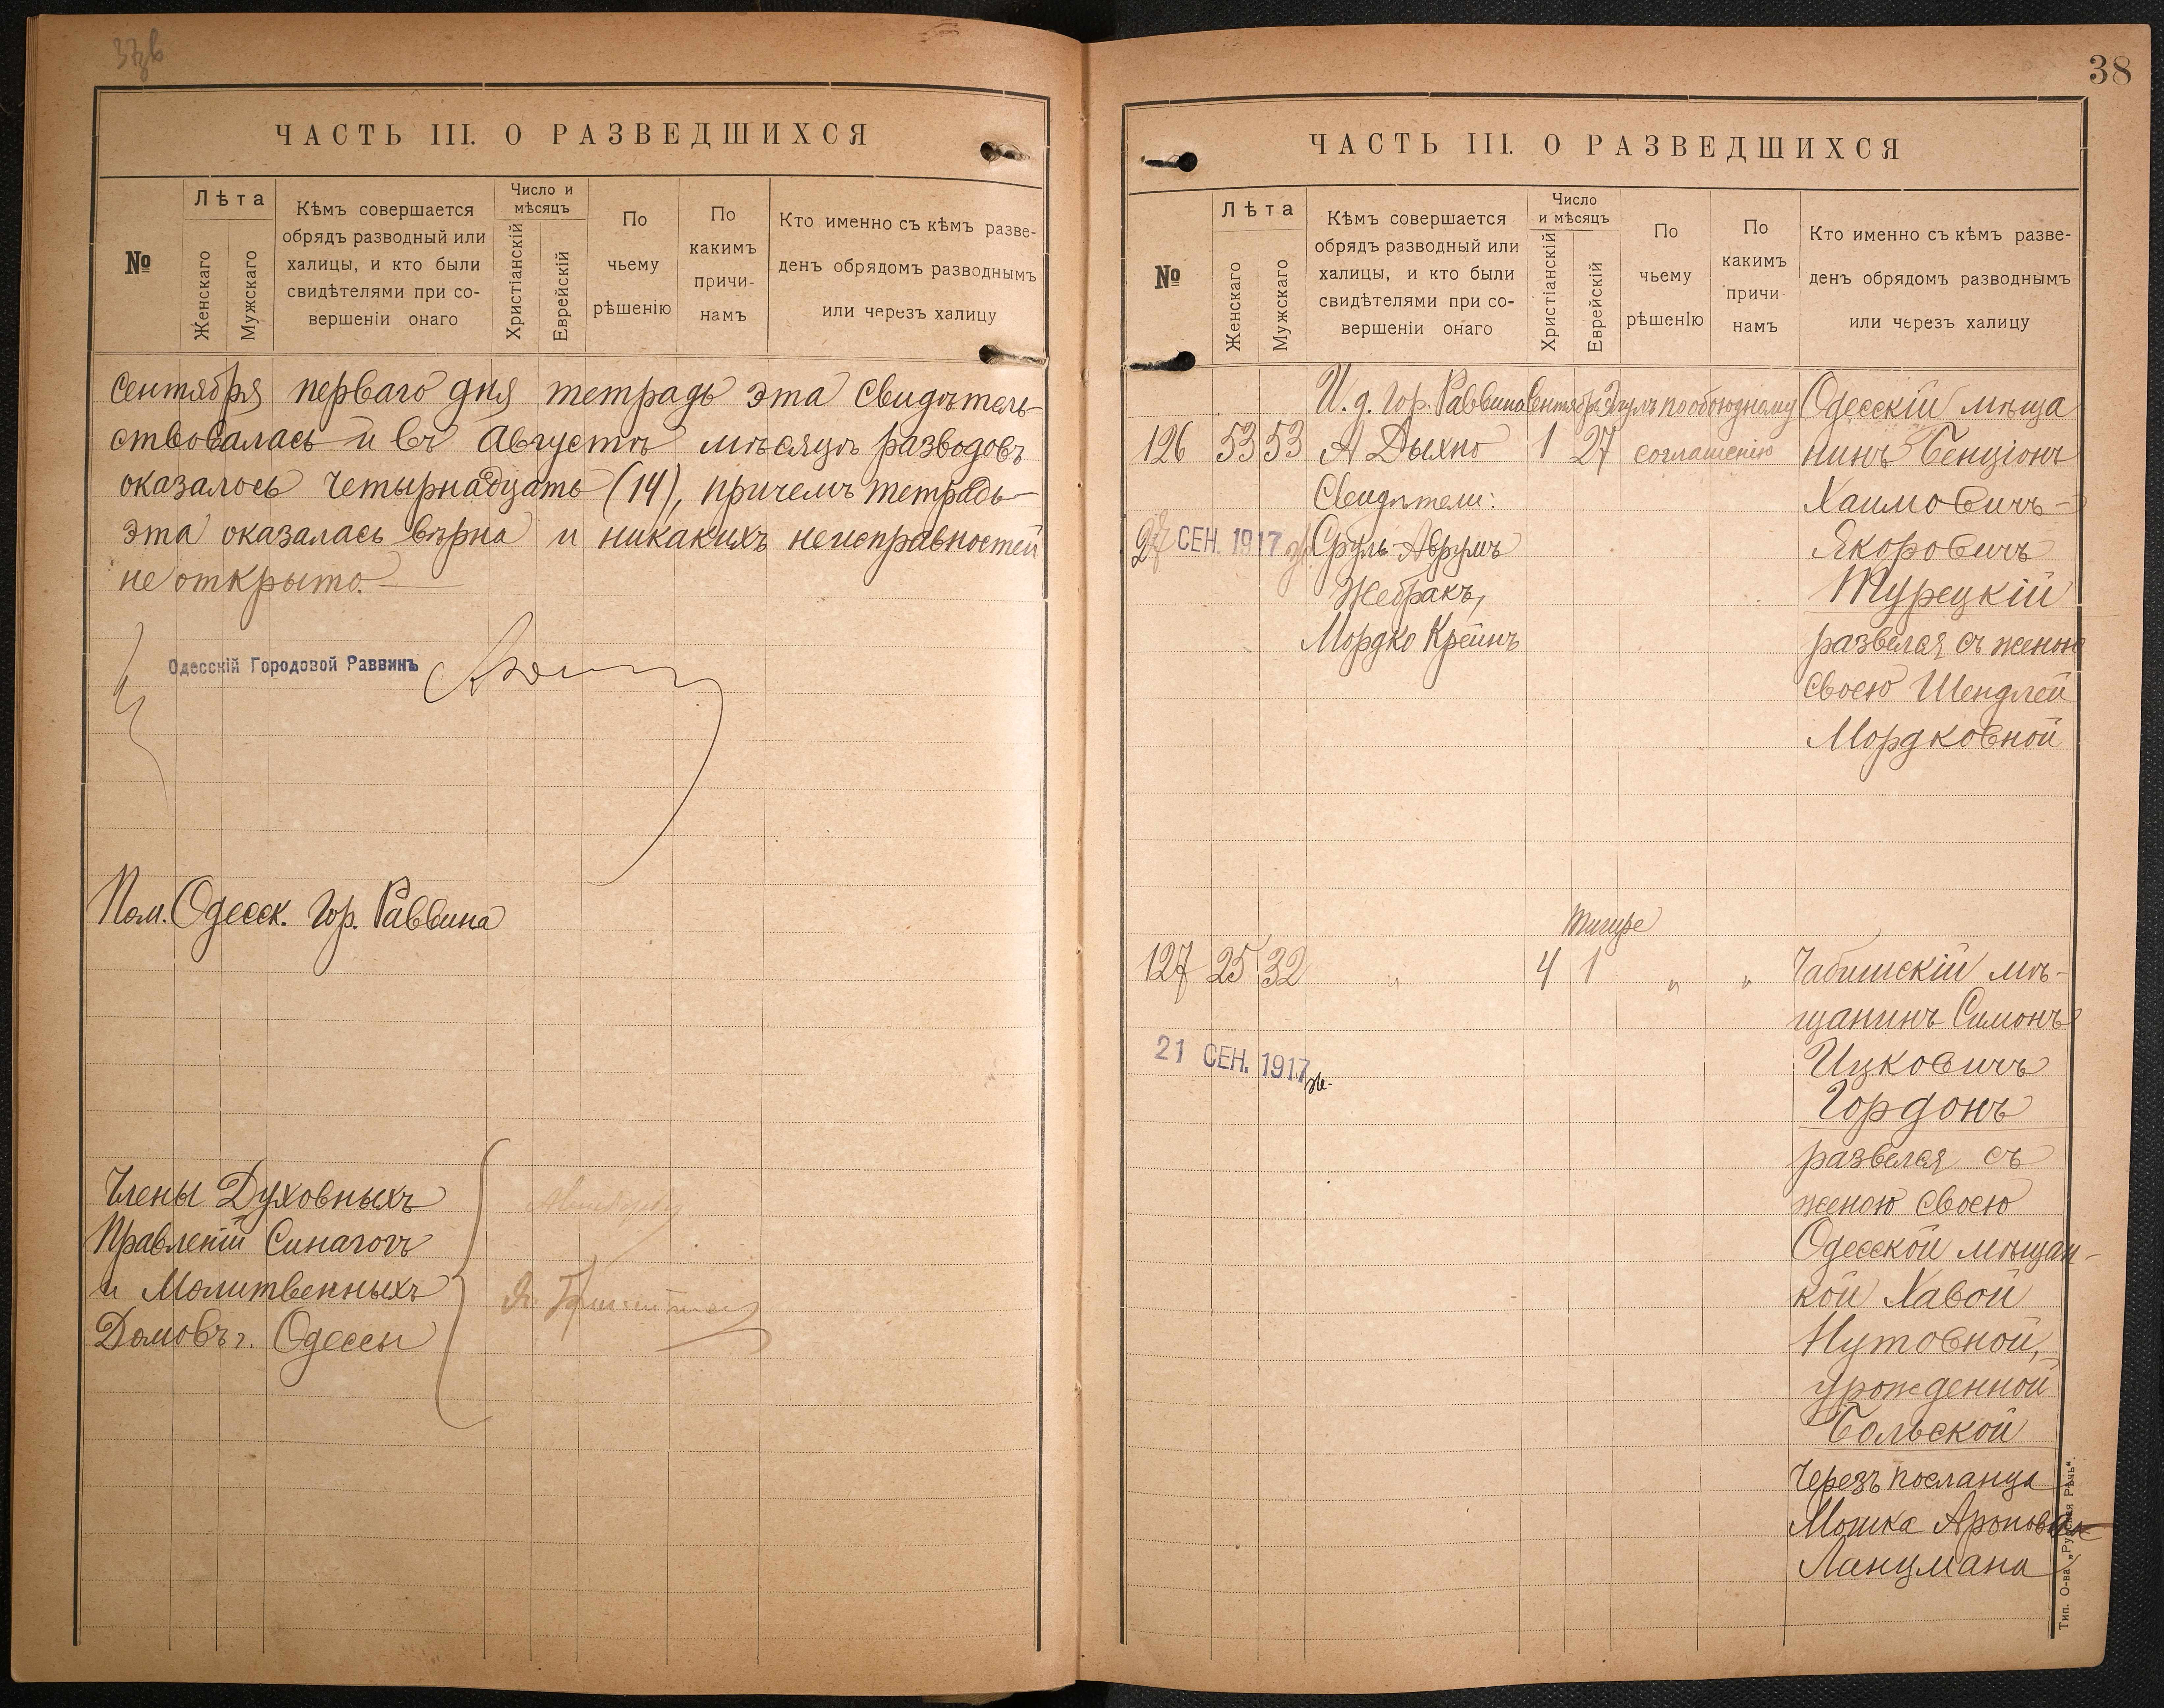 ЧАСТЬ III. О РАЗВЕДШИХСЯ
№
Лѣта
Женскаго
Мужскаго
Кѣмъ совершается
обрядъ разводный или
халицы, и кто были
свидѣтелями при со-
вершеніи онаго
Число и
мѣсяцъ
Христіанскій
Еврейскій
По
чьему
рѣшенію
По
какимъ
причи-
намъ
Кто именно съ кѣмъ разве-
денъ обрядомъ разводнымъ
или черезъ халицу
Сентября перваго дня тетрадь эта свидѣтель-
ствовалась и въ Августѣ мѣсяцѣ разводовъ
оказалось четырнадцать (14), причемъ тетрадь
эта оказалась вѣрна и никакихъ неисправностей
не открыто.
Одесскій Городовой Раввинъ
Пом. Одесск. Гор. Раввина
Члены Духовныхъ
Правленій Синагогъ
и Молитвенныхъ
Домовъ г. Одессы
38
ЧАСТЬ III. О РАЗВЕДШИХСЯ
№
Лѣта
Женскаго
Мужскаго
Кѣмъ совершается
обрядъ разводный или
халицы, и кто были
свидѣтелями при со-
вершеніи онаго
Число
и мѣсяцъ
Христіанскій
Еврейскій
По
чьему
рѣшенію
По
какимъ
причи
намъ
Кто именно съ кѣмъ разве-
денъ обрядомъ разводнымъ
или черезъ халицу
И. д. Гор. Раввина Сентября Элулъ по обоюдному Одесскій мѣща
126 53 53 А Дыхно 1 27 соглашенію нинъ Бенціонъ
Свидѣтели: Хаимовичъ-
27 СЕН. 1917 Сруль-Аврумъ Якоровичъ
Жебракъ, Турецкій
Мордко Крейнъ развелся съ женою
своею Шендлей
Мордковной
Тишре
127 25 32 " 4 1 " " Чабишскій мѣ-
щанинъ Симонъ
21 СЕН. 1917 Ицковичъ
Гордонъ
развелся съ
женою своею
Одесской мѣщан-
кой Хавой
Нутовной,
урожденной
Больской
Черезъ посланца
Мошка Аронова
Ланцмана
Тип. О-ва „Русская Рѣчь".